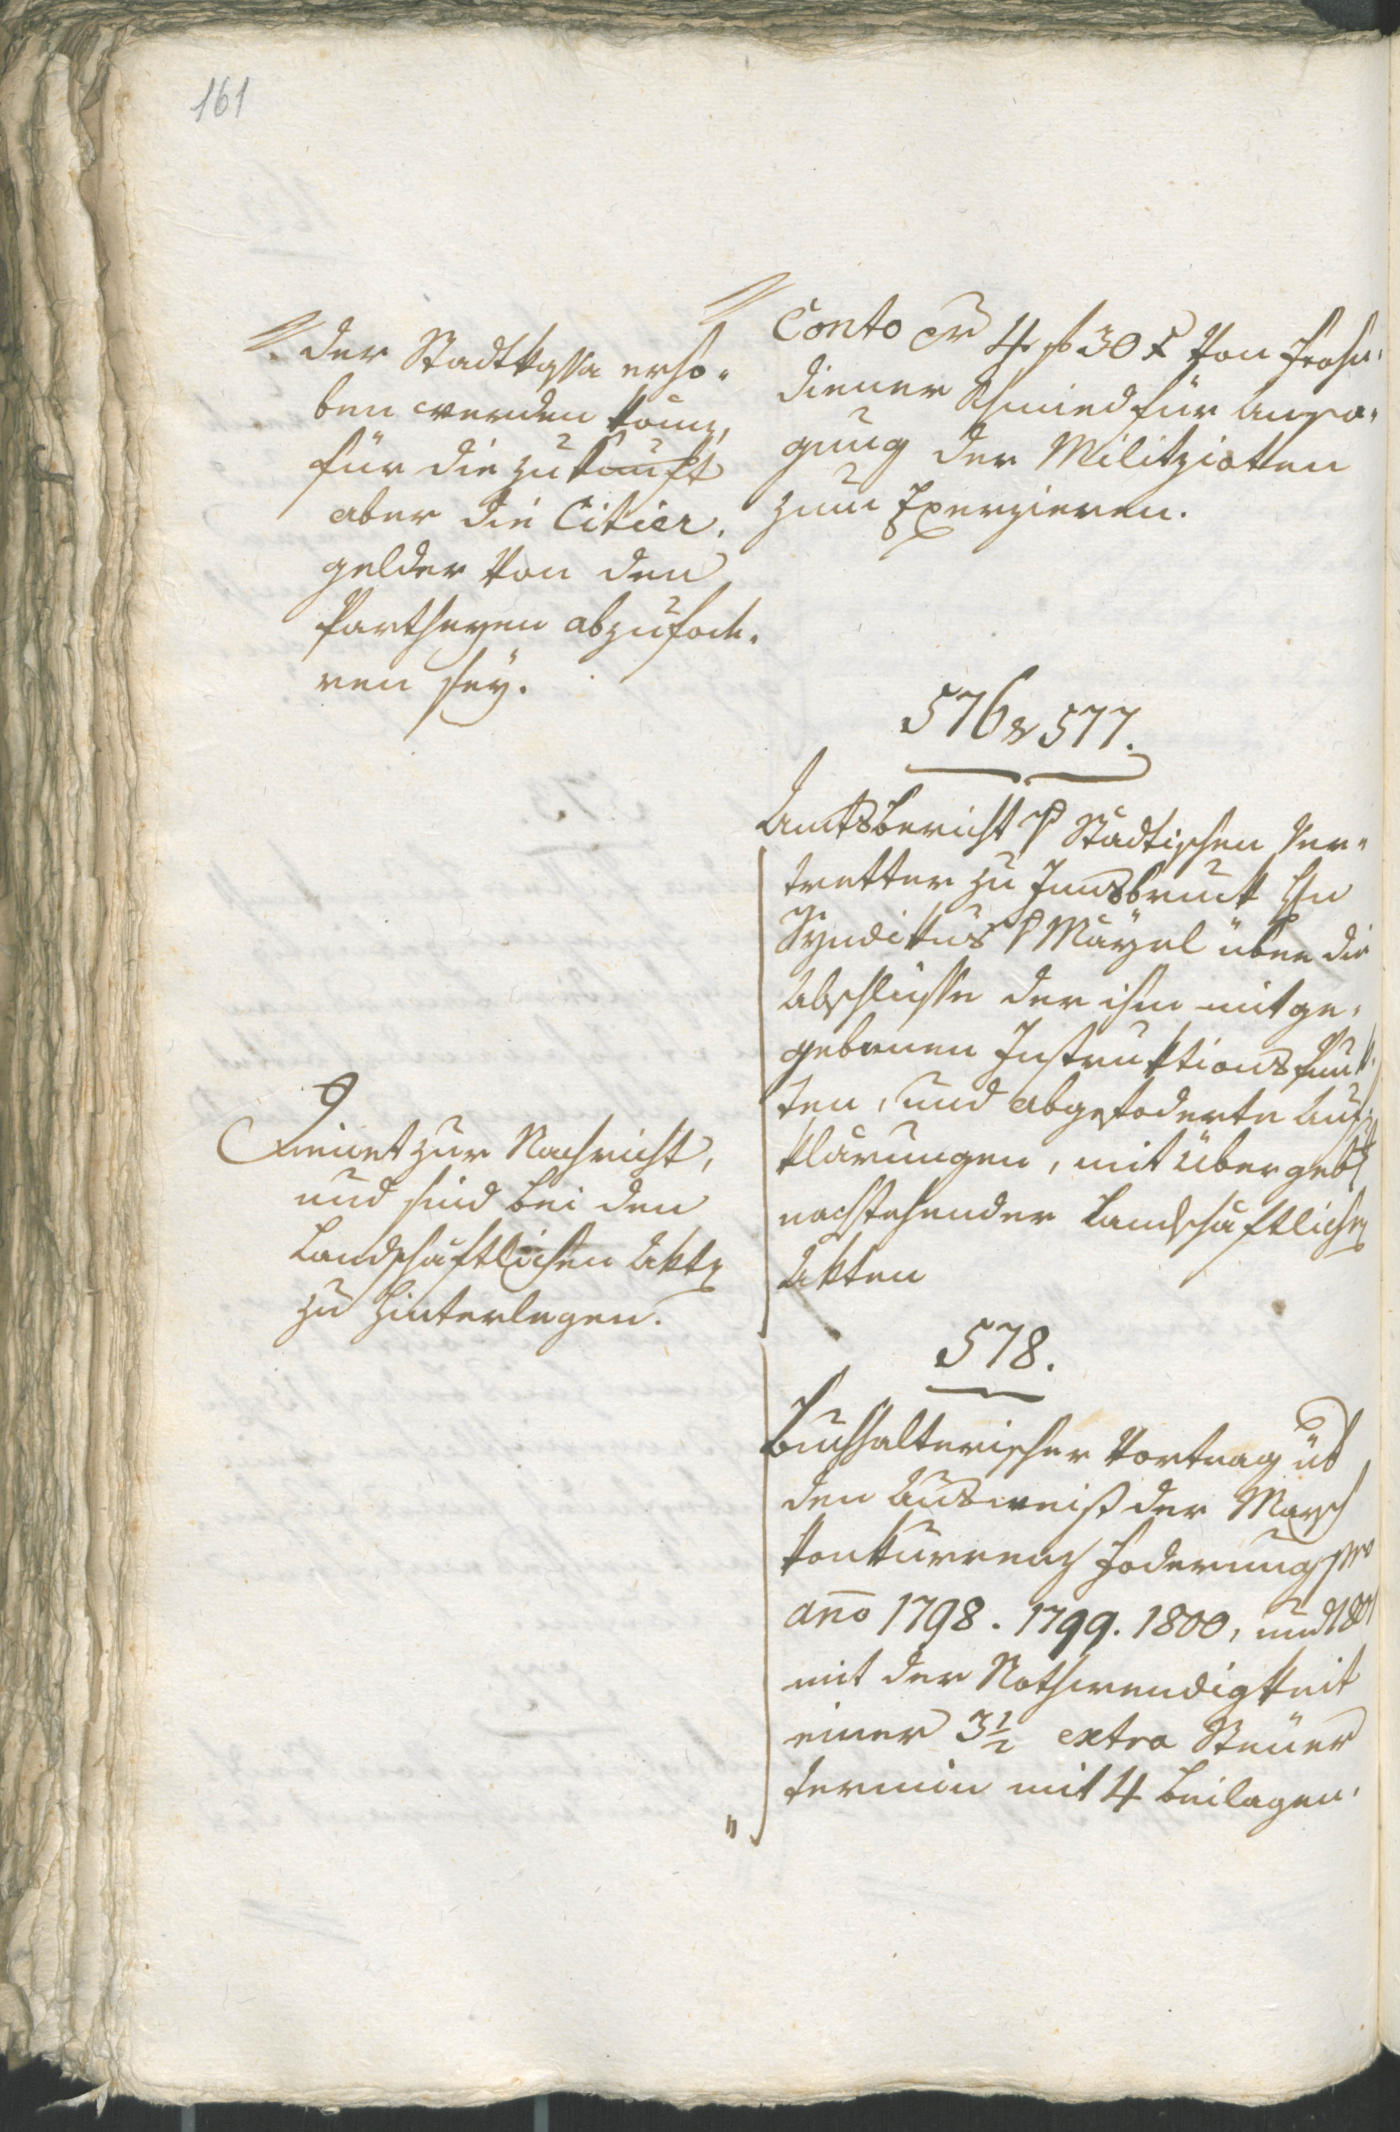 161
der Stadtkassa erho-
ben werden könne,
für die Zukunft
aber die Citier-
gelder von den
Partheyen abzufode-
ren sey.
Conto pr 4 f 30 x von Frohn-
diener Schmied für Ansa-
gung der Militzioten
zum Exerzieren.
576 & 577.
Amtsbericht Städtischen Ver-
tretter zu Innsbruck Hn
Syndikus Mäyrl über die
Abschlüsse der ihm mitge-
gebenen Instruktionspunk-
ten, und abgefoderte Auf-
klärungen, mit übergeb
nachstehender Landschaftlichen
Akten
Dienet zur Nachricht,
und sind bei den
Landschaftlichen Akten
zu Hinterlegen.
578.
Buchhalterischer Vortrag üb
den Ausweiß der Marsch
konkurrenz Foderung pro
anno 1798. 1799. 1800, und 1801
mit der Nothwendigkeit
einer 3 1/2 extra Steuer
termin mit 4 Beilagen.